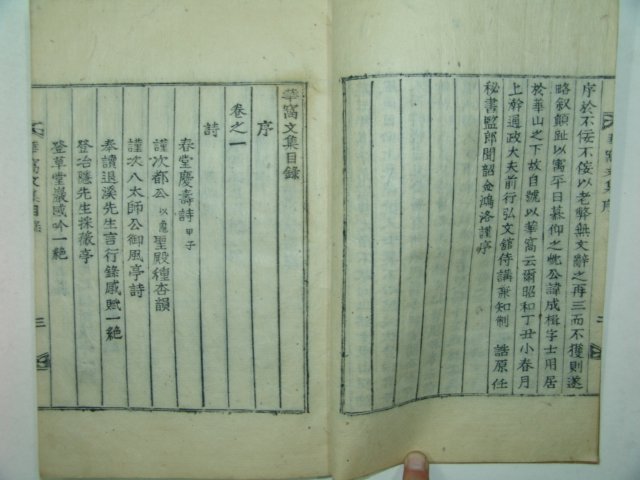 華窩文集序
序於不侫不侫以老弊無文辭之再三而不獲則遂
略叙顚趾以寓平日慕仰之忱公諱成楫字士用居
於華山之下故自號以華窩云爾昭和丁丑小春月
上幹通政大夫前行弘文舘侍講兼知制誥原任
秘書監郎聞韶金鴻洛謹序
二
華窩文集目錄
序
卷之一
詩
春堂慶壽詩甲子
謹次都公以龜聖殿種杏韻
謹次八太師公御風亭詩
奉讀退溪先生言行錄感賦一絶
登冶隱先生採薇亭
登草堂巖感吟一絶
華窩文集目錄
三